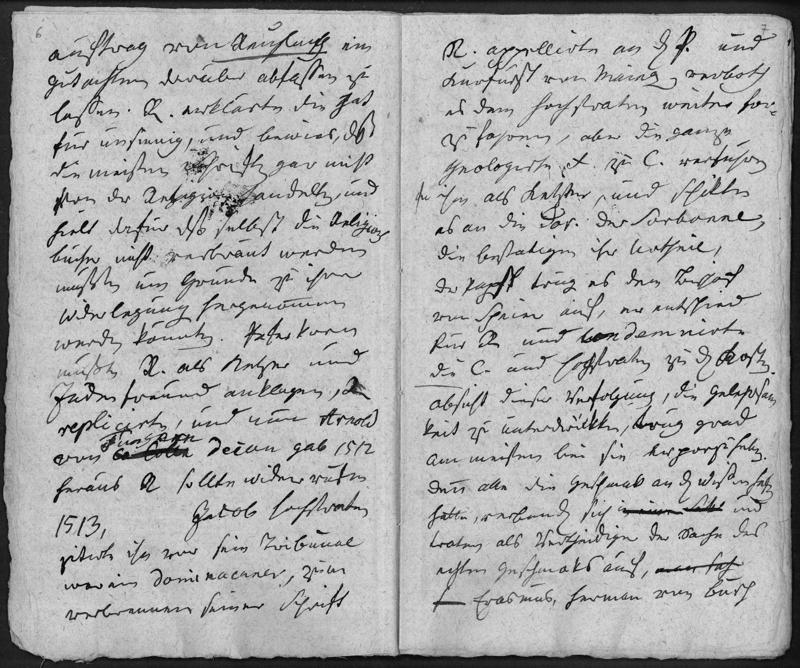 6
auftrag von Reuchlin ein
gutachten darüber abfassen zu
lassen. R. erklärte die that
für unsinnig, und bewies, daß
die meisten Schriften gar nicht
von der Religion handelten, und
hielt dafür daß selbst die Religions
bücher nicht verbrant werden
müßten um Gründe zu ihrer
widerlegung hergenommen
werden könnten. Pfeferkorn
mußte R. als Ketzer und
Judenfreund anklagen, R
replicirte, und nun Arnold
von Tungern Decan gab 1512
heraus R sollte widerrufen
1513, Jacob Hochstraten
zitirte ihn vor sein Tribunal
war ein Dominacaner, zum
verbrennen seiner Schrift
7
R. appellirte an d P. und
Kurfürst von Mainz verboth
es dem Hochstraten weiter for-
zufahren, aber die ganze
theologische F. zu C. verfuhr
ihn als Ketzer, und schikte
es an die Par. der Sorbonne,
die bestätigen ihr Urtheil,
der Papst trug es dem Bischof
von Speier auf, er entschied
für R und condemnirte
die C. und Hochstraten zu d Kosten.
absicht dieser Verfolgung, die gelehrsam
keit zu unterdrükken, trug grad
am meisten bei sie empor
denn alle die Geschmak an d Wissenschaft
hatten, verband sich und
traten als Vertheidiger der Sache des
echten Geschmaks auf,
Erasmus, Herman von Busch